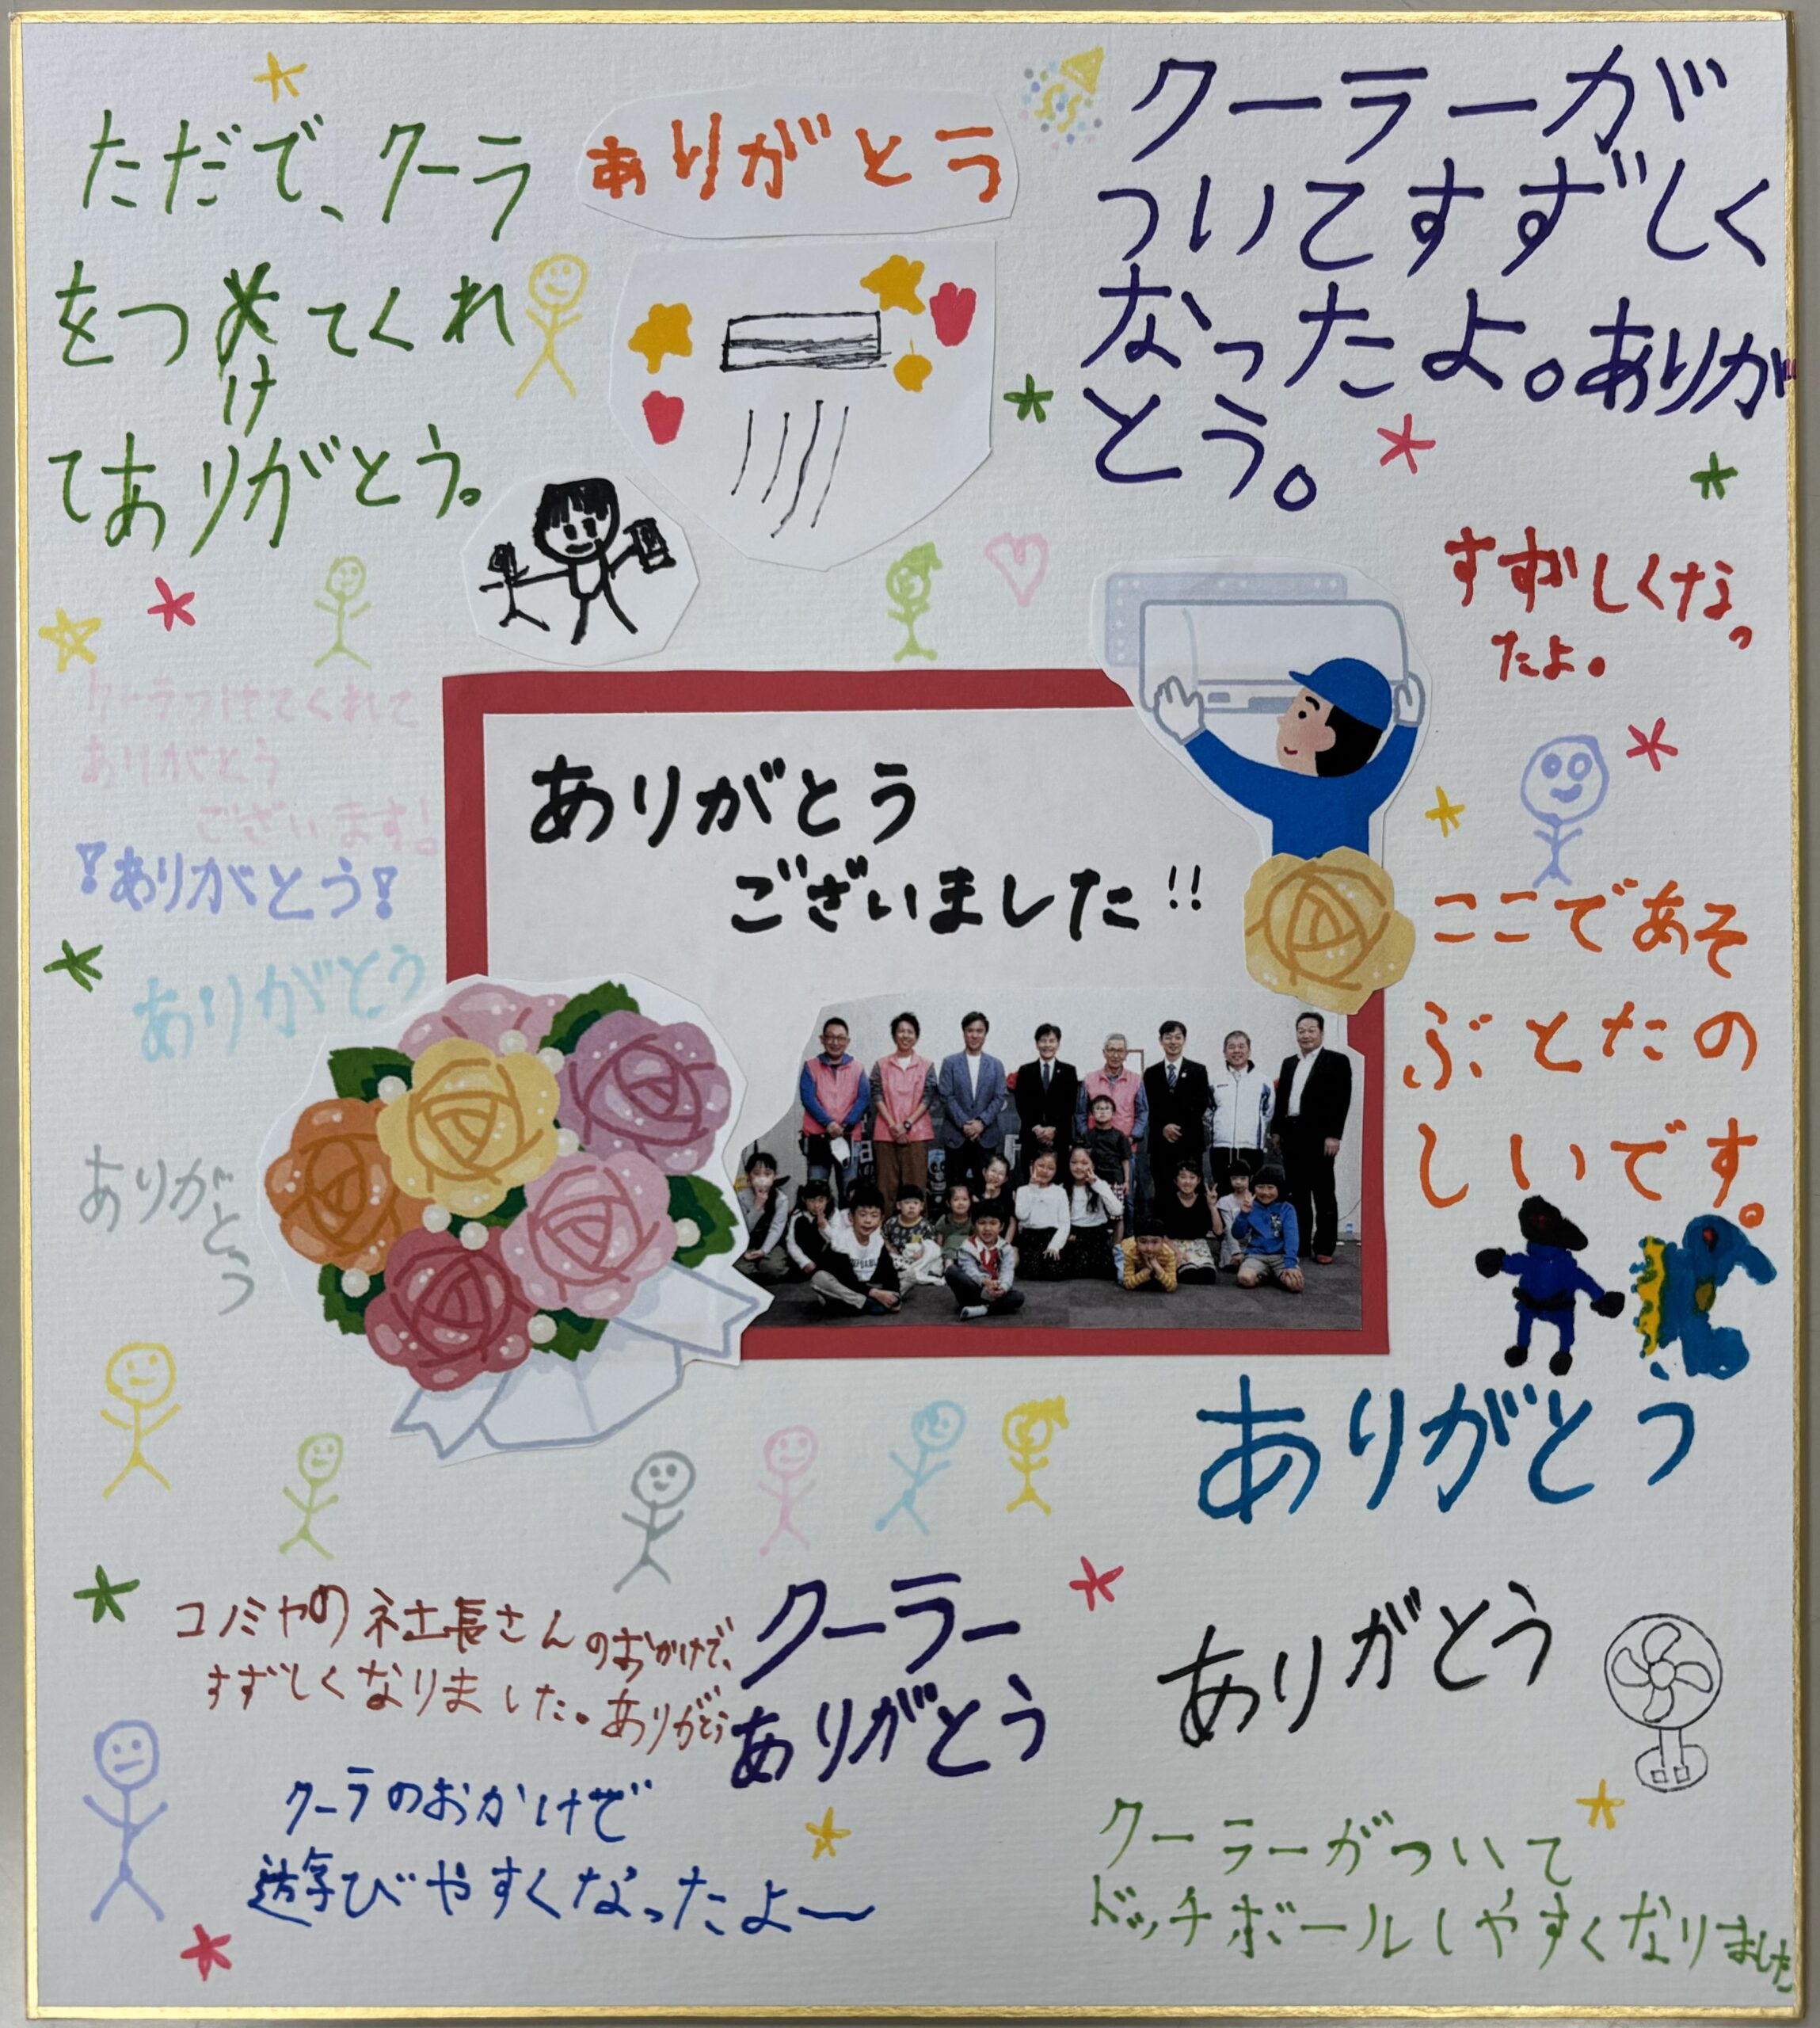 ただで、クーラ
をつけてくれ
てありがとう。
ありがとう
クーラーが
ついてすずしく
なったよ。ありが
とう。
すずしくなっ
たよ。
クーラつけてくれて
ありがとう
ございます!
!ありがとう!
ありがとう
ありがとう
ありがとう
ございました!!
ここであそ
ぶとたの
しいです。
ありがとう
コノミヤの社長さんのおかけで、
すずしくなりました。ありがとう
クーラー
ありがとう
ありがとう
クーラのおかけで
遊びやすくなったよ〜
クーラーがついて
ドッチボールしやすくなりました